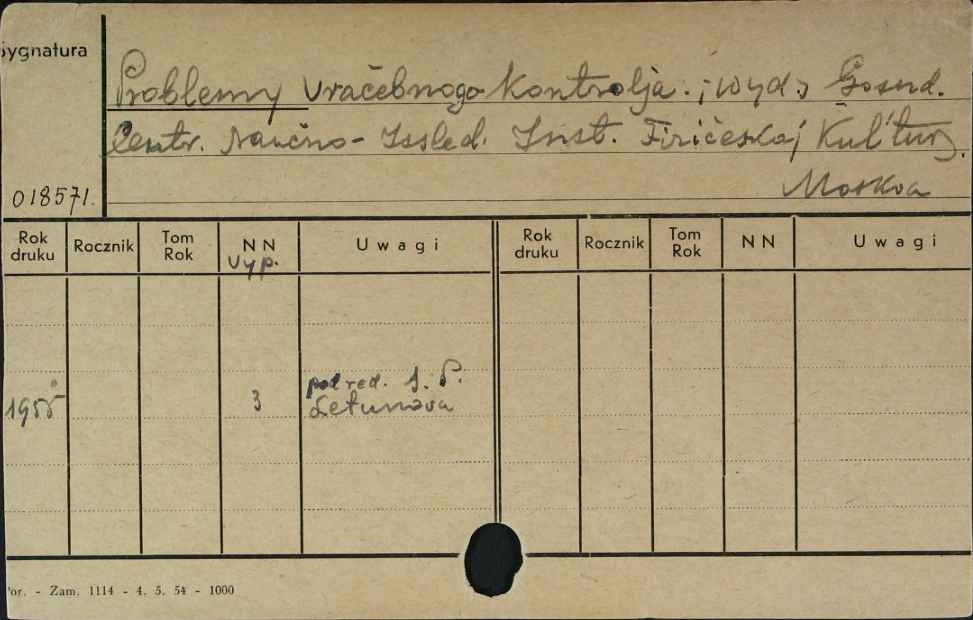 Sygnatura
Problemy Vračebnogo Kontrolja. ; wyd. Gosud.
Centr. Naučno-Issled. Inst. Fizičeskoj Kul'tury.
Moskva
018571.
Rok druku Rocznik Tom Rok NN Uwagi Rok druku Rocznik Tom Rok NN Uwagi
Vyp.
pod red. S. P.
1955 3 Letunova
Por. - Zam. 1114 - 4. 5. 54 - 1000